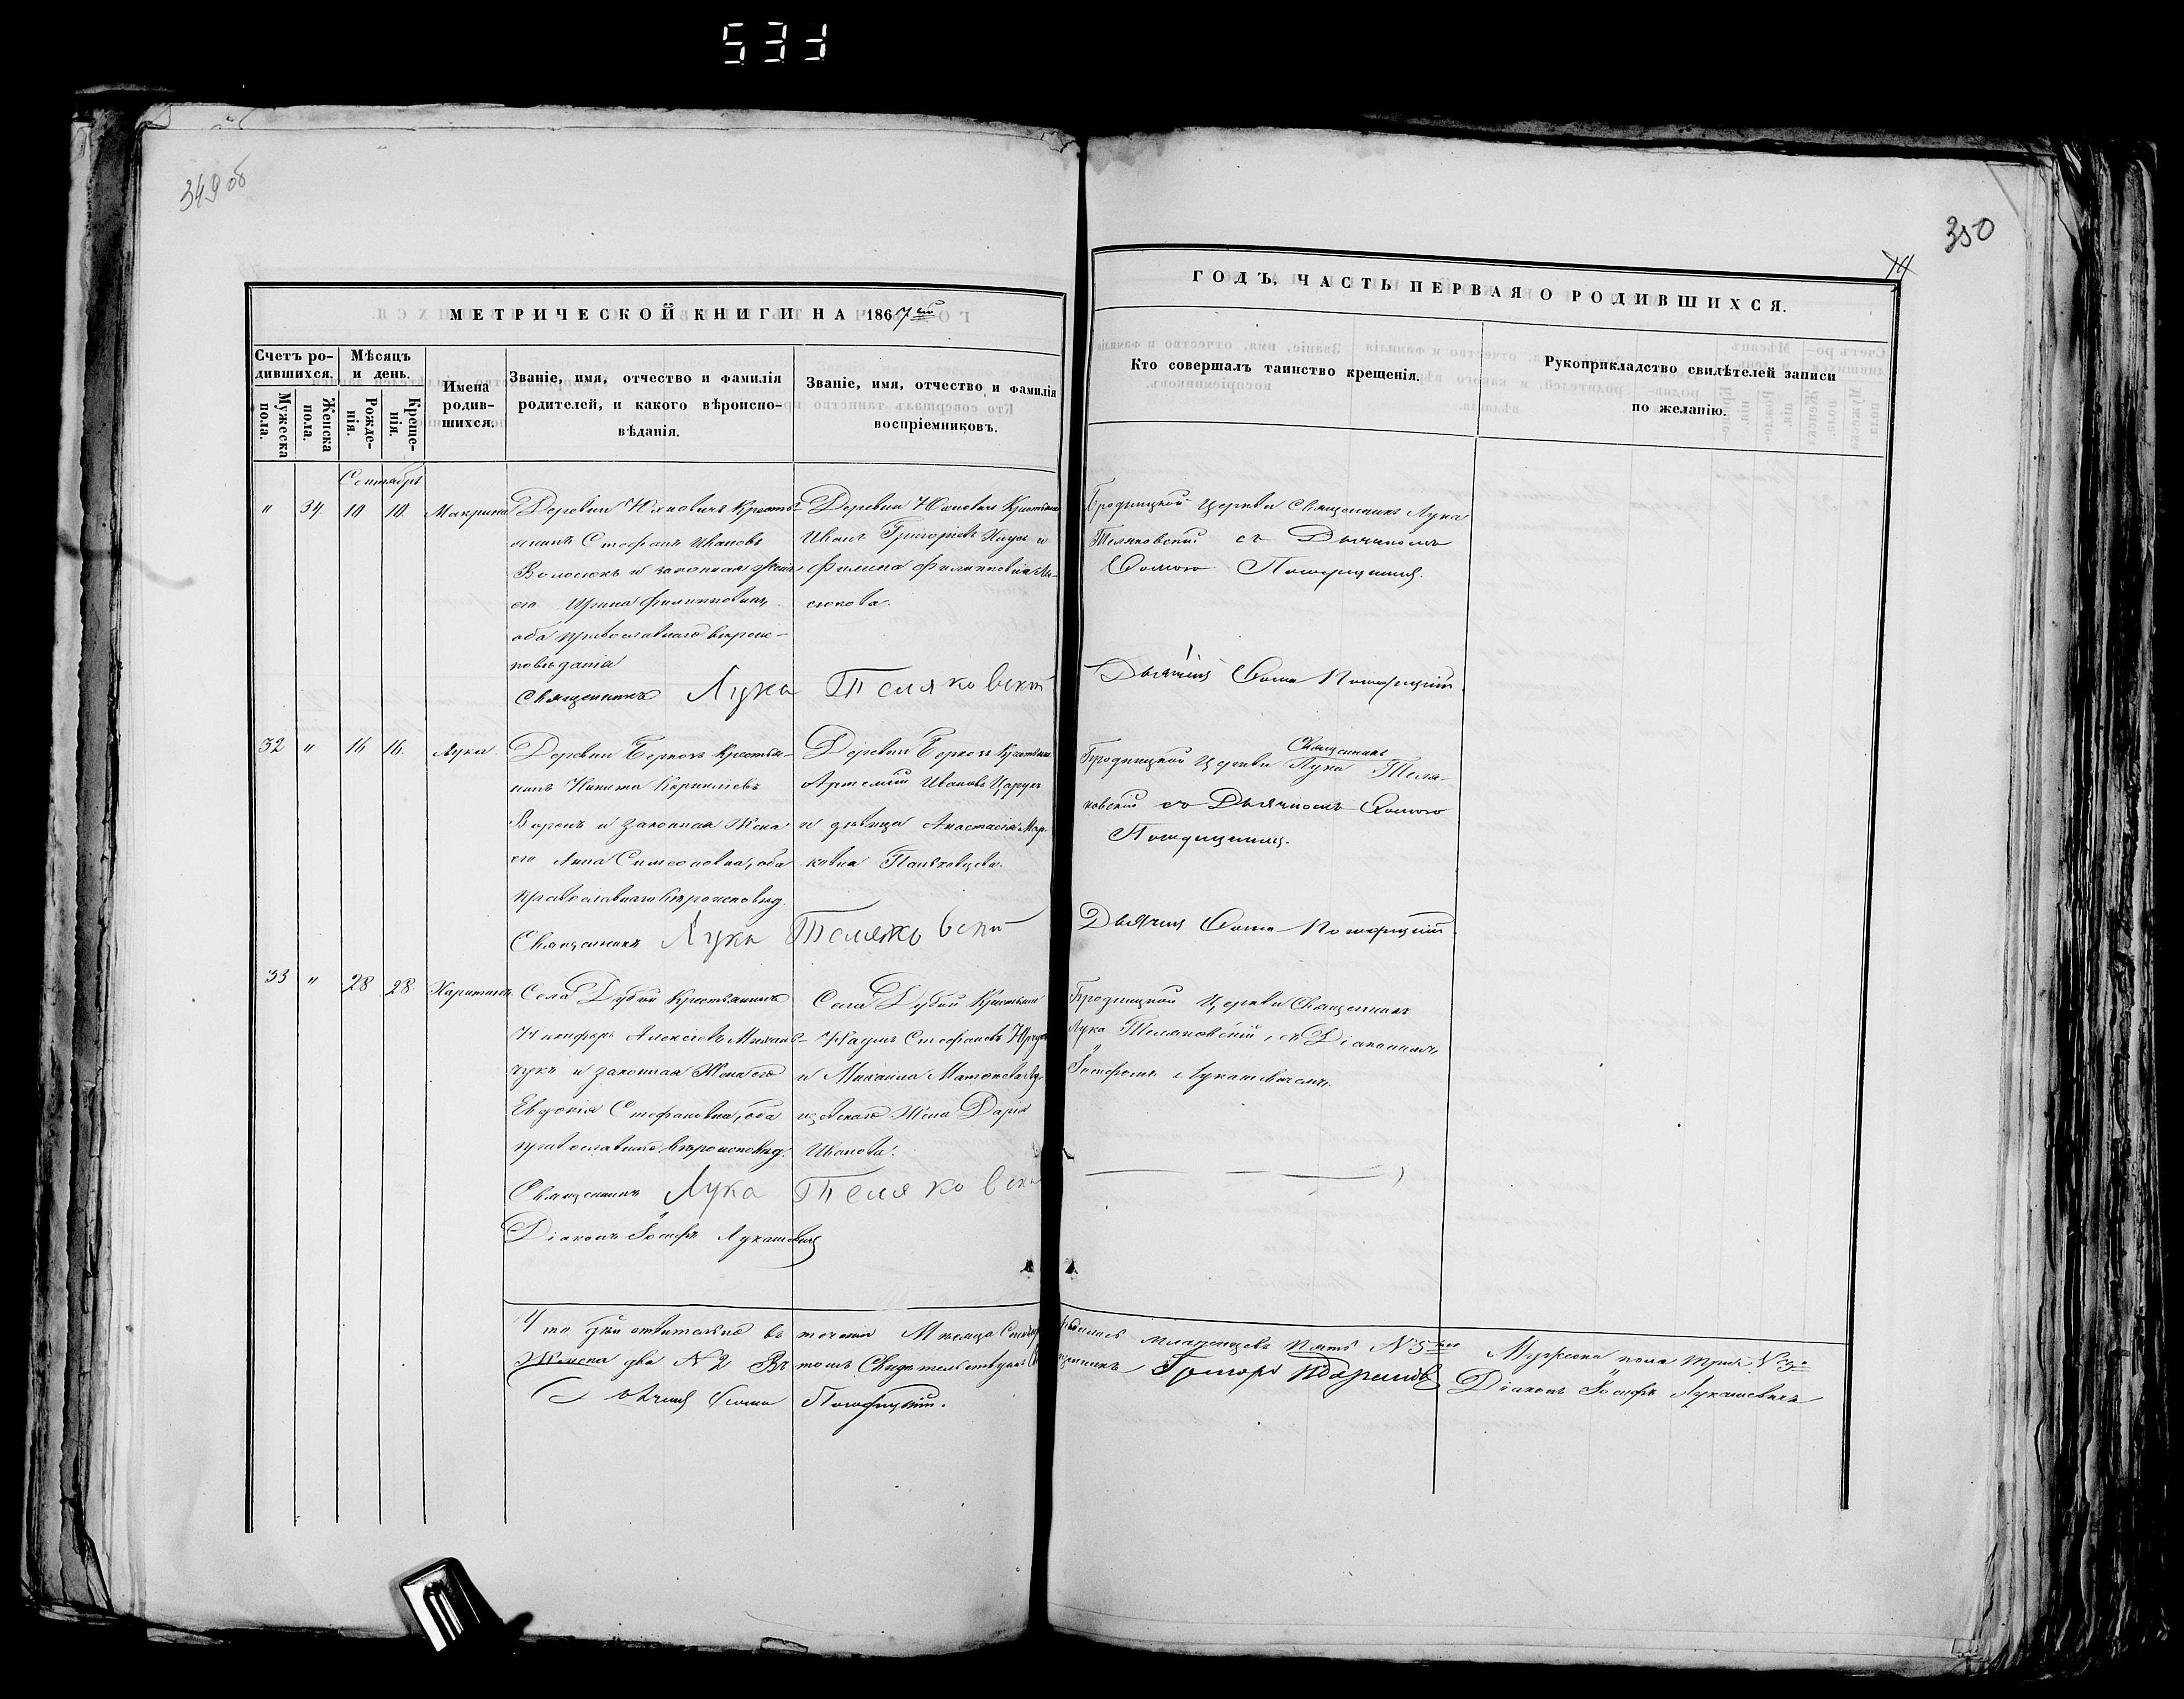 533
349 об
350
14
МЕТРИЧЕСКОЙ КНИГИ НА 1867 ой
ГОДЪ, ЧАСТЬ ПЕРВАЯ О РОДИВШИХСЯ.
Счетъ ро-
дившихся.
Мужеска
пола.
Женска
пола.
Мѣсяцъ
и день.
Рожде-
нія.
Креще-
нія.
Имена
родив-
шихся.
Званіе, имя, отчество и фамилія
родителей, и какого вѣроиспо-
вѣданія.
Званіе, имя, отчество и фамилія
воспріемниковъ.
Кто совершалъ таинство крещенія.
Рукоприкладство свидѣтелей записи
по желанію.
Сентябрь
" 34 10 10. Макрина
Деревни Юхновичъ Крестья-
нинъ Стефанъ Ивановъ
Волосюкъ и законная жена
его Ирина Филипповна,
оба православнаго вѣроис-
повѣданія
Священникъ Лука Теляковскій
Деревни Юхновичъ Крестьянинъ
Иванъ Григорьевъ и
Филипповна
сюкова.
Бродницкой Церкви Священникъ Лука
Теляковскій съ Дьячкомъ
Фомою
Дьячекъ Фома
32 " 16 16. Лука
Деревни Крестья-
нинъ Никита Корниліевъ
Воронъ и законная Жена
его Анна Симеоновна, оба
православнаго вѣроисповѣд.
Священникъ Лука Теляковскій
Деревни Крестьянинъ
Артемій Ивановъ Царукъ
и дѣвица Анастасія Мар-
ковна
Бродницкой Церкви Священникъ Лука Теля-
ковскій съ Дьячкомъ Фомою
Дьячекъ Фома
33 " 28 28. Харитонъ
Села Дубой Крестьянинъ
Никифоръ Алексіевъ Михаль-
чукъ и законная Жена его
Евдокія Стефановна, оба
православнаго вѣроисповѣд.
Священникъ Лука Теляковскій
Діаконъ Іосифъ Лукашевичъ
Села Дубой Крестьянинъ
Стефановъ
и Михаила
Жена Дарія
Иванова.
Бродницкой Церкви Священникъ
Лука Теляковскій, съ Діакономъ
Іосифомъ Лукашевичемъ.
Что дѣйствительно въ теченіи Мѣсяца родилось младенцевъ пять N 5 Мужеска пола три N 3
Женска два N 2 Въ томъ Свидѣтельствуемъ Діаконъ Іосифъ Лукашевичъ
Дьячекъ Фома